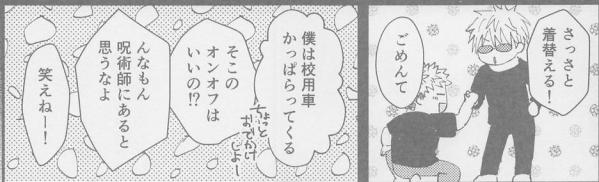 さっさと
着替える!
ごめんて
僕は校用車
かっぱらってくる
ちょっと
おでかけ
じょ〜
そこの
オンオフは
いいの!?
んなもん
呪術師にあると
思うなよ
笑えねー!